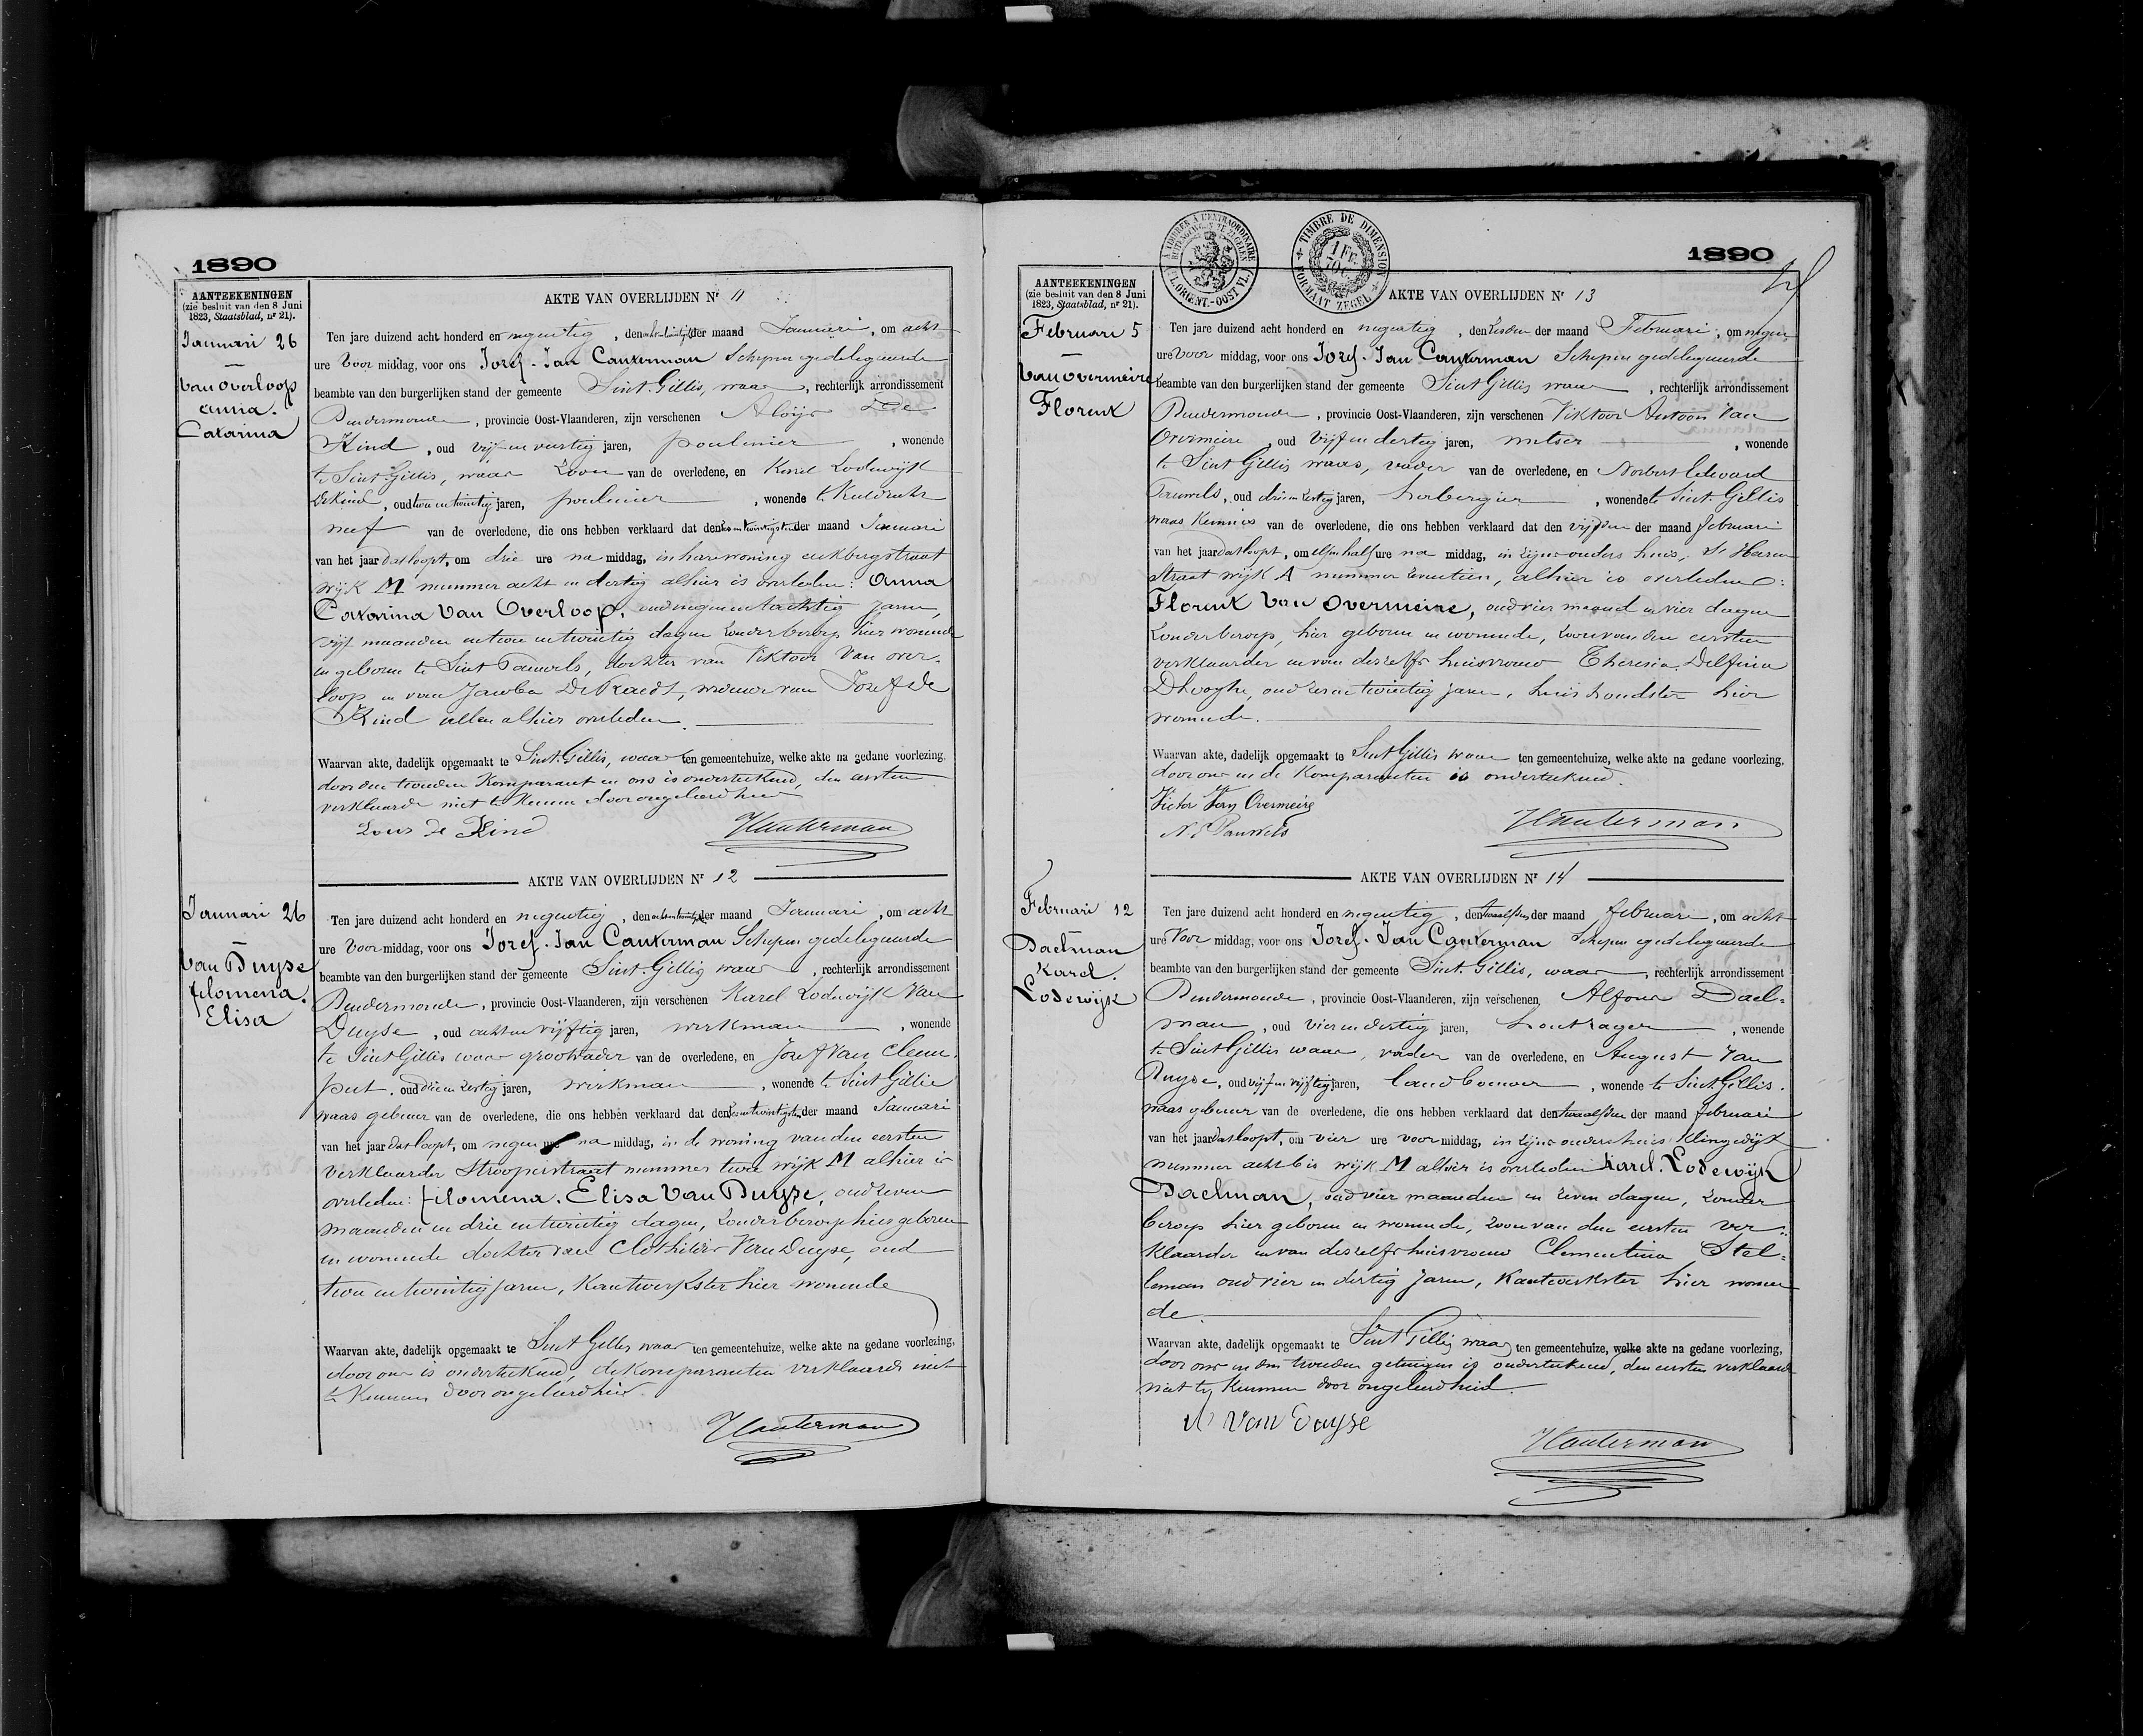 1890
AANTEEKENINGEN
(zie besluit van den 8 Juni
1823, Staatsblad, nr 21).
Januari 26
Van Overloop
Anna.
Catarina
AKTE VAN OVERLIJDEN Nr 11
Ten jare duizend acht honderd en negentig, den der maand Januari, om acht
ure Voor middag, voor ons Jozef-Jan Cauterman Schepen gedelegeerde
beambte van den burgerlijken stand der gemeente Sint-Gillis, waas, rechterlijk arrondissement
Dendermonde, provincie Oost-Vlaanderen, zijn verschenen Aloijs De
Kind, oud vijf en veertig jaren, poelenier, wonende
te Sint Gillis, waas Zoon van de overledene, en Karel Lodewijk
De Kind, oud twee en twintig jaren, poelenier, wonende te Kieldrecht
neef van de overledene, die ons hebben verklaard dat den zes en twintigsten der maand Januari
van het jaar dat loopt, om drie ure na middag, in hare woning eekbergstraat
wijk M nummer acht en dertig alhier is overleden: Anna
Catarina Van Overloop, oud negen en tachtig jaren,
vijf maanden en twee en twintig dagen zonder beroep hier wonende
en geboren te Sint Pauwels, dochter van Viktoor Van over-
loop en van Jacoba De Kraedt, weduwe van Jozef de
Kind allen alhier overleden.
Waarvan akte, dadelijk opgemaakt te Sint-Gillis, waas ten gemeentehuize, welke akte na gedane voorlezing,
door den tweeden Komparant en ons is onderteekend, den eersten
verklaarde niet te Kunnen door ongeleerdheid
Louis de Kind
JCauterman
Januari 26
Van Duyse
filomena.
Elisa
AKTE VAN OVERLIJDEN Nr 12
Ten jare duizend acht honderd en negentig, den der maand Januari, om acht
ure Voor middag, voor ons Jozef-Jan Cauterman Schepen gedelegeerde
beambte van den burgerlijken stand der gemeente Sint-Gillis waas, rechterlijk arrondissement
Dendermonde, provincie Oost-Vlaanderen, zijn verschenen Karel Lodewijk Van
Duyse, oud acht en vijftig jaren, werkman, wonende
te Sint Gillis waas grootvader van de overledene, en Jozef Van Cleem-
put, oud drie en zestig jaren, werkman, wonende te Sint Gillis
waas gebuur van de overledene, die ons hebben verklaard dat den zes en twintigsten der maand Januari
van het jaar dat loopt, om negen ure na middag, in de woning van den eersten
verklaarder Strooperstraat nummer twee wijk M alhier is
overleden: filomena. Elisa Van Duyse, oud zeven
maanden en drie en twintig dagen, zonder beroep hier geboren
en wonende dochter van Clothildis Van Duyse, oud
twee en twintig jaren, Kantwerkster hier wonende
Waarvan akte, dadelijk opgemaakt te Sint Gillis waas ten gemeentehuize, welke akte na gedane voorlezing,
door ons is onderteekend, de komparanten verklaarde niet
te Kunnen door ongeleerdheid.
JCauterman
TIMBRES A L'EXTRAORDINAIRE
FL. ORIENT.-OOST VL.
TIMBRE DE DIMENSION
1 FR.
FORMAAT ZEGEL
1890
AANTEEKENINGEN
(zie besluit van den 8 Juni
1823, Staatsblad, nr 21).
Februari 5
Van Overmeire
Florent
AKTE VAN OVERLIJDEN Nr 13
Ten jare duizend acht honderd en negentig, den zesden der maand Februari, om negen
ure voor middag, voor ons Jozef-Jan Cauterman Schepen gedelegeerde
beambte van den burgerlijken stand der gemeente Sint Gillis waas, rechterlijk arrondissement
Dendermonde, provincie Oost-Vlaanderen, zijn verschenen Viktoor Antoon Van
Overmeire, oud vijf en dertig jaren, metser, wonende
te Sint Gillis waas, vader van de overledene, en Norbert Edward
Pauwels, oud drie en zestig jaren, herbergier, wonende te Sint-Gillis
waas Kennis van de overledene, die ons hebben verklaard dat den vijfden der maand februari
van het jaar dat loopt, om elf en half ure na middag, in zijns ouders huis,
Straat wijk A nummer zeventien, alhier is overleden:
Florent Van Overmeire, oud vier maand en vier dagen
zonder beroep, hier geboren en wonende, zoon van den eersten
verklaarder en van deszelfs huisvrouw Theresia Delfina
Dhooghe, oud zeven en twintig jaren, huishoudster hier
wonende.
Waarvan akte, dadelijk opgemaakt te Sint Gillis waas ten gemeentehuize, welke akte na gedane voorlezing,
door ons en de Komparanten is onderteekend.
Victor Van Overmeire
N E Pauwels
JCauterman
Februari 12
Daelman
Karel.
Lodewijk
AKTE VAN OVERLIJDEN Nr 14
Ten jare duizend acht honderd en negentig, den twaalfden der maand februari, om acht
ure Voor middag, voor ons Jozef-Jan Cauterman Schepen gedelegeerde
beambte van den burgerlijken stand der gemeente Sint-Gillis, waas, rechterlijk arrondissement
Dendermonde, provincie Oost-Vlaanderen, zijn verschenen Alfons Dael-
man, oud vier en dertig jaren, houtzager, wonende
te Sint Gillis waas, vader van de overledene, en August Van
Duyse, oud vijf en vijftig jaren, landbouwer, wonende te Sint Gillis.
waas gebuur van de overledene, die ons hebben verklaard dat den twaalfden der maand februari
van het jaar dat loopt, om vier ure voor middag, in zijns ouders huis Klingedijk
nummer acht bis wijk M alhier is overleden Karel. Lodewijk
Daelman, oud vier maanden en zeven dagen, zonder
beroep hier geboren en wonende, zoon van den eersten ver-
klaarder en van deszelfs huisvrouw Clementina Stel-
leman oud vier en dertig jaren, Kantwerkster hier wonen
de.
Waarvan akte, dadelijk opgemaakt te Sint Gillis waas ten gemeentehuize, welke akte na gedane voorlezing,
door ons en den tweeden getuigen is onderteekend, den eersten verklaarde
niet te Kunnen door ongeleerdheid.
Van Duyse
JCauterman